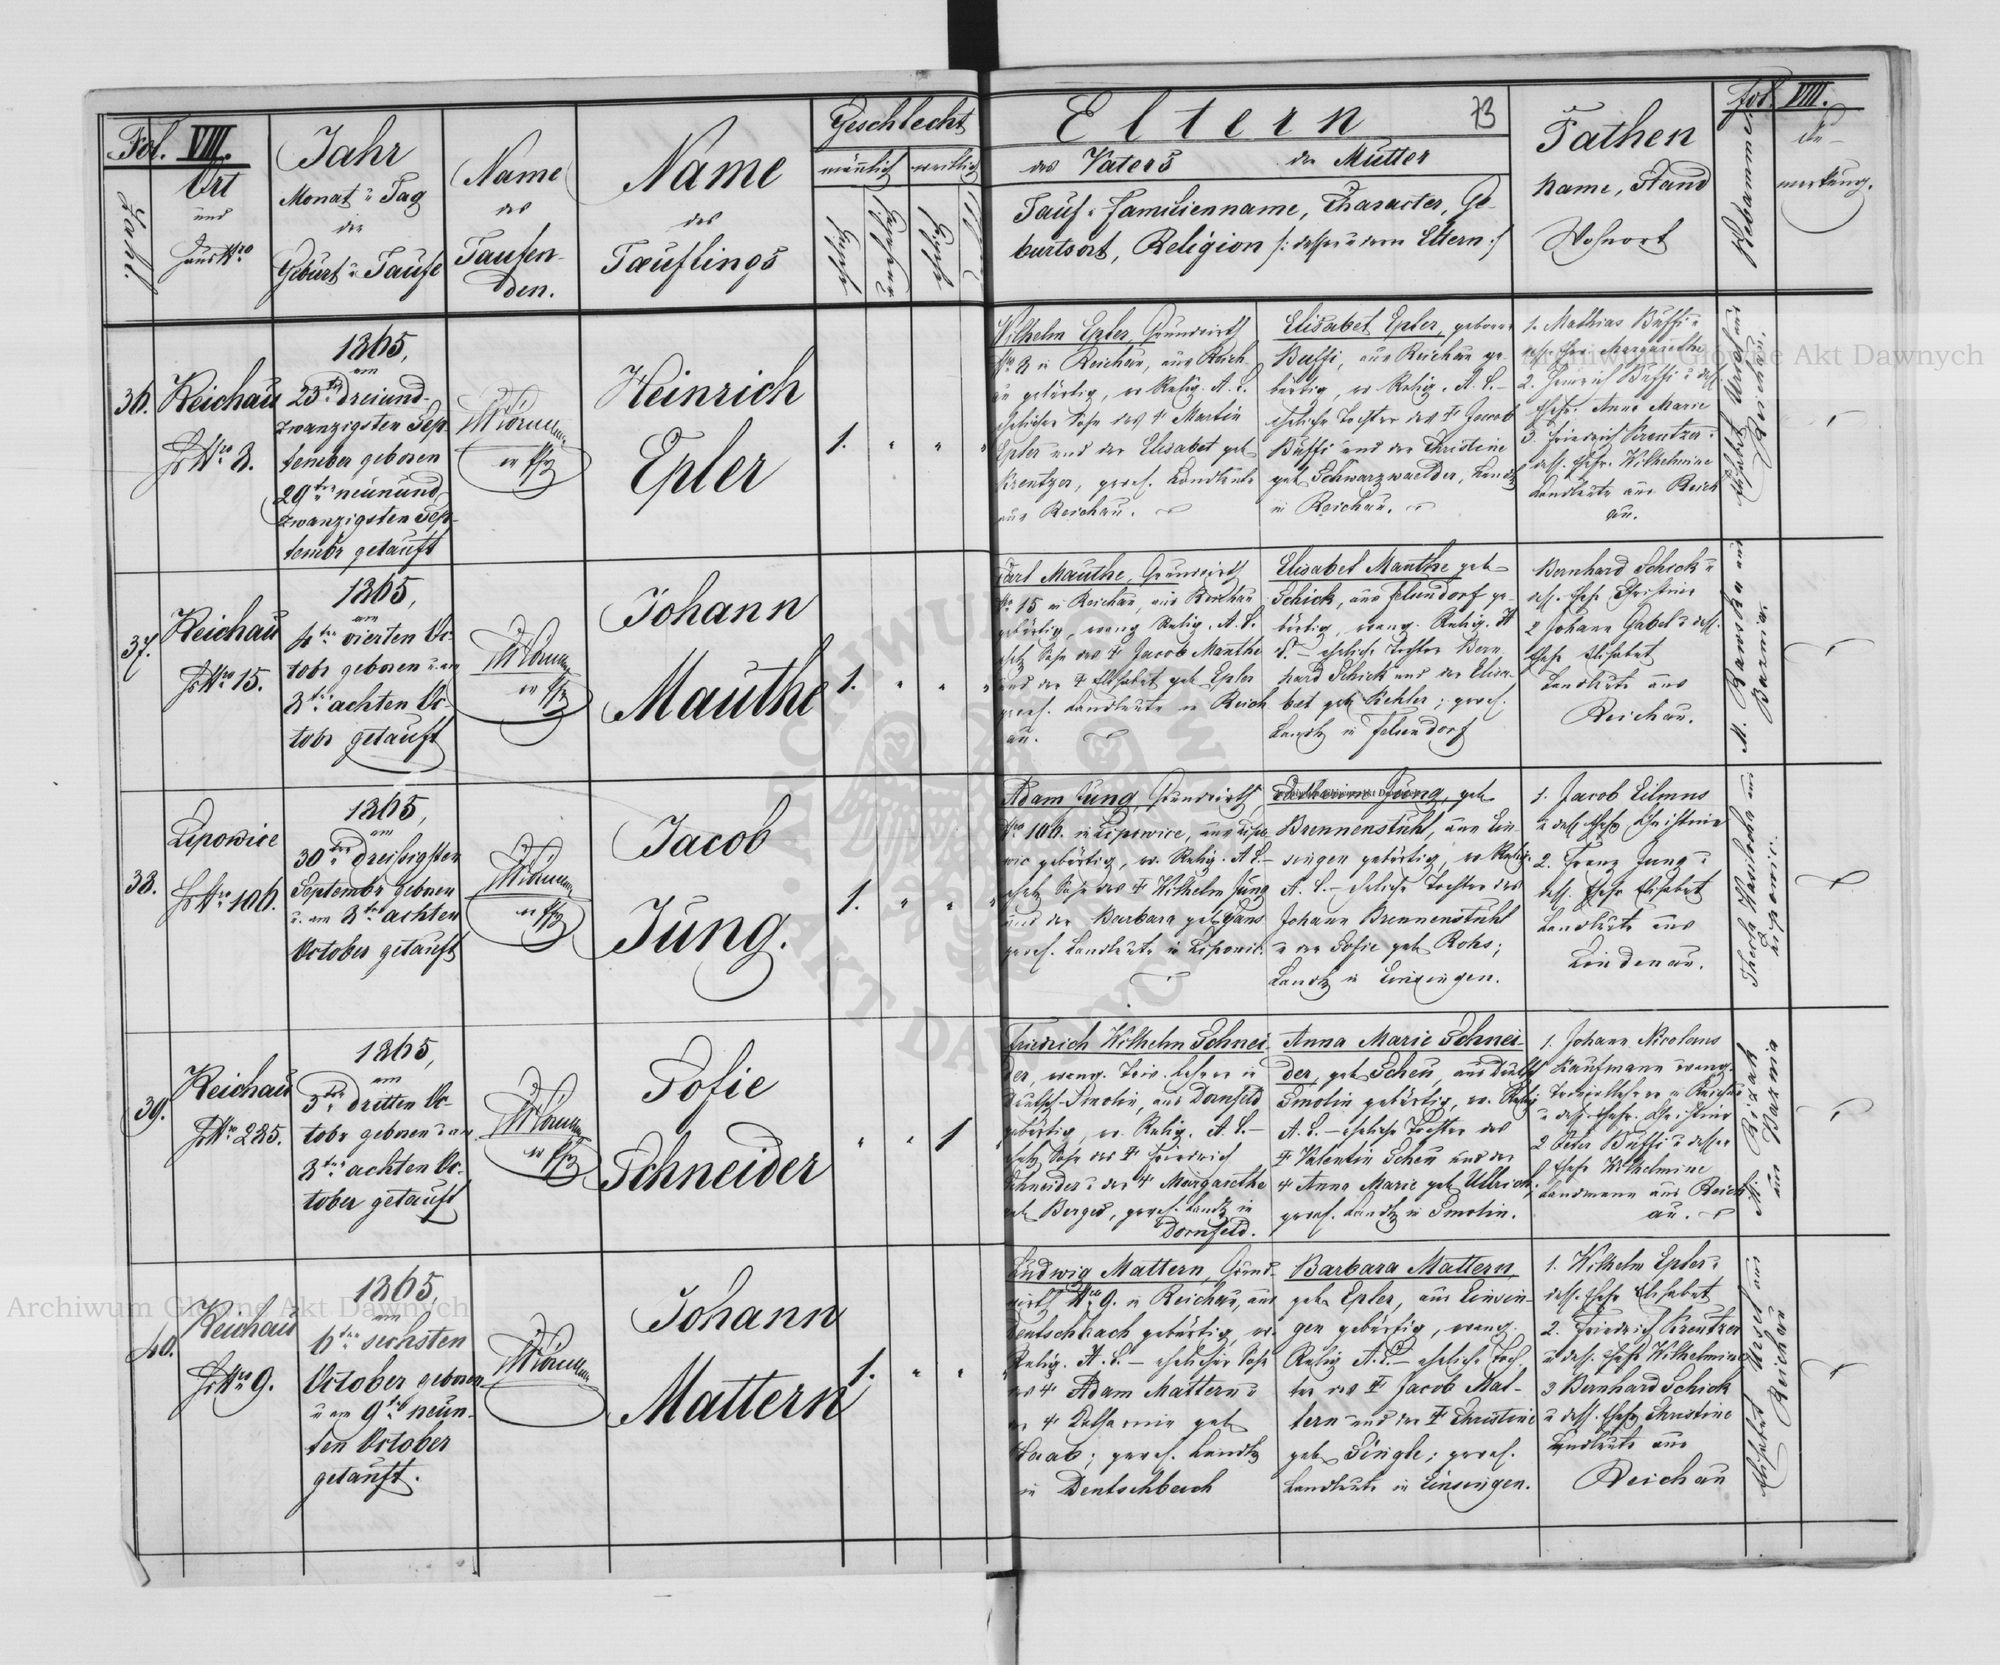 Fol. VIII.
Zahl.
Ort
und
Haus Nro
Jahr
Monat u Tag
der
Geburt u Taufe
Name
des
Taufen-
den.
Name
des
Täuflings
Geschlecht
männlich weiblich
Eltern
73
des Vaters der Mutter
Tauf u Familienname, Character, Ge-
burtsort, Religion /: dessen u deren Eltern :/
Pathen
Name, Stand
Wohnort
Hebamme
Fol. VIII.
Be-
merkung.
36.
Reichau
Hs Nro 8.
1865,
am
23ten dreiund-
zwanzigsten Sep-
tember geboren
29ten neunund-
zwanzigsten Sep-
tembr getauft
Heinrich
Epler
1.
Wilhelm Epler, Grundwirth
Nro 8 in Reichau, aus Reich-
au gebürtig, ev Relig. A. C.
ehelicher Sohn des † Martin
Epler und der Elisabet geb
Krentzer, gewes. Landleute
aus Reichau.
Elisabet Epler, geborne
Buffi, aus Reichau ge-
bürtig, ev Relig. A. C. –
eheliche Tochter des † Jacob
Buffi und der Christine
geb Schwarzwaelder, Landl
in Reichau.
1. Mathias Buffi u
dess. Ehfr. Margarethe
2. Heinrich Buffi u dess
Ehefr. Anna Marie
3. Friedrich Krentzer u
dess. Ehefr. Wilhelmine
Landleute aus Reich
au.
37.
Reichau
Hs Nro 15.
1865,
am
4ten vierten Oc-
tobr geboren u am
8ten achten Oc-
tobr getauft
Johann
Mauthe
1.
Carl Mauthe, Grundwirth
Nro 15 in Reichau, aus Reichau
gebürtig, evang Relig. A. C.
ehel Sohn des † Jacob Mauthe
und der † Elisabet geb Epler
gewes. Landleute in Reich
au.
Elisabet Mauthe geb
Schick, aus Felsendorf ge-
bürtig, evang. Relig. A
C. – eheliche Tochter Bern-
hard Schick und der Elisa-
bet geb Kehler; gewes.
Landl in Felsendorf
Bernhard Schick u
dess. Ehefr Christine
2 Johann Gabel u dess.
Ehefr Elisabet
Landleute aus
Reichau.
38.
Lipowice
Hs Nro 106.
1865,
am
30ten dreißigsten
Septembr geboren
u. am 8ten achten
October getauft
Jacob
Jung.
1.
Adam Jung, Grundwirth,
Nro 106. in Lipowice, aus Lipo-
wic gebürtig, ev. Relig. A. C. –
ehel Sohn des † Wilhelm Jung
und der Barbara geb Gans
gewes. Landleute in Lipowic.
Jung, geb
Brennenstuhl, aus Ein-
singen gebürtig, ev Relig.
A. C. – eheliche Tochter des
Johann Brennenstuhl
u der Sofie geb Rohs;
Landl in Einsingen.
1. Jacob Eilmus
u dess. Ehefr Christine
2. Franz Jung u
dess. Ehefr Elisabet
Landleute aus
Lindenau.
39.
Reichau
Hs Nro 285.
1865,
am
3ten dritten Oc-
tobr geboren u am
8ten achten Oc-
tober getauft
Sofie
Schneider
1
Friedrich Wilhelm Schnei-
der, evang. Triv. Lehrer in
Deutsch-Smolin, aus Dornfeld
gebürtig, ev. Relig. A. C. –
ehel Sohn des † Friedrich
Schneider u der † Margarethe
geb Berger, gewes. Landl in
Dornfeld.
Anna Marie Schnei-
der, geb Scheu, aus Deutsch
Smolin gebürtig, ev. Relig.
A. C. – eheliche Tochter des
† Valentin Scheu und der
† Anna Marie geb Ullrich;
gewes. Landl in Smolin.
1. Johann Nicolaus
Kaufmann evang.
Triviallehrer in Reichau
u dess. Ehefr. Christine
2 Peter Buffi u dessen
Ehefr Wilhelmine
Landmann aus Reich
au.
40.
Reichau
Hs Nro 9.
1865,
am
6ten sechsten
October geboren
u am 9ten neun-
ten October
getauft.
Johann
Mattern
1.
Ludwig Mattern, Grund-
wirth Nro 9. in Reichau, aus
Deutschbach gebürtig, ev.
Relig. A. C. – ehelicher Sohn
des † Adam Mattern u
der † Catharine geb
Haab; gewes. Landl
in Deutschbach
Barbara Mattern,
geb Epler, aus Einsin-
gen gebürtig, evang.
Relig A. C. – eheliche Toch-
ter des † Jacob Mat-
tern und der † Christine
geb Single; gewes.
Landleute in Einsingen.
1. Wilhelm Epler u
dess. Ehefr Elisabet
2. Friedrich Krentzer
u dess. Ehefr Wilhelmine
3 Bernhard Schick
u dess. Ehefr Christine
Landleute aus
Reichau
Archiwum Główne Akt Dawnych
Archiwum Główne Akt Dawnych